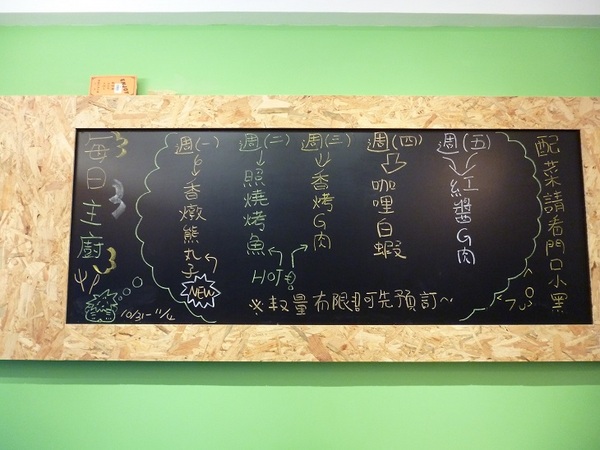 每日主廚
10/31-11/4
週(一)
香燉熊丸子
NEW
週(二)
照燒烤魚
週(三)
香烤G肉
HOT
週(四)
咖哩白蝦
週(五)
紅醬G肉
※數量有限 可先預訂~
配菜請看門口小黑